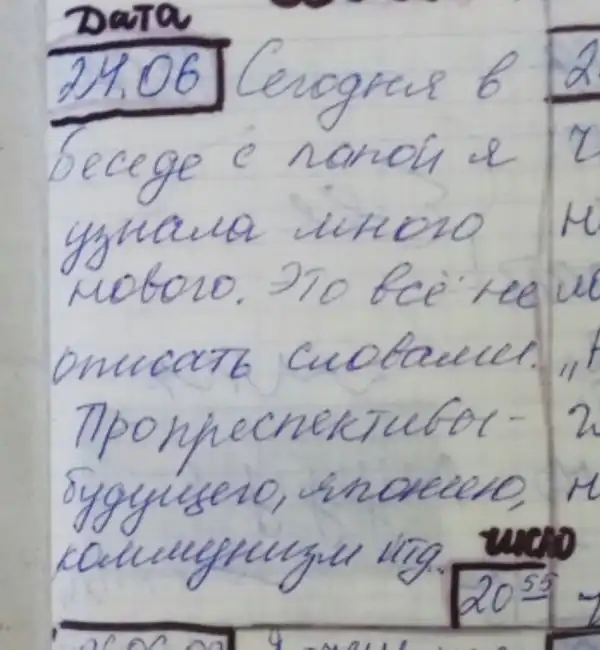 Дата
24.06 Сегодня в
беседе с папой я
узнала много
нового. Это всё не
описать словами.
Пропреспективы-
будущего, японию,
коммунизм итд.
число
20 55